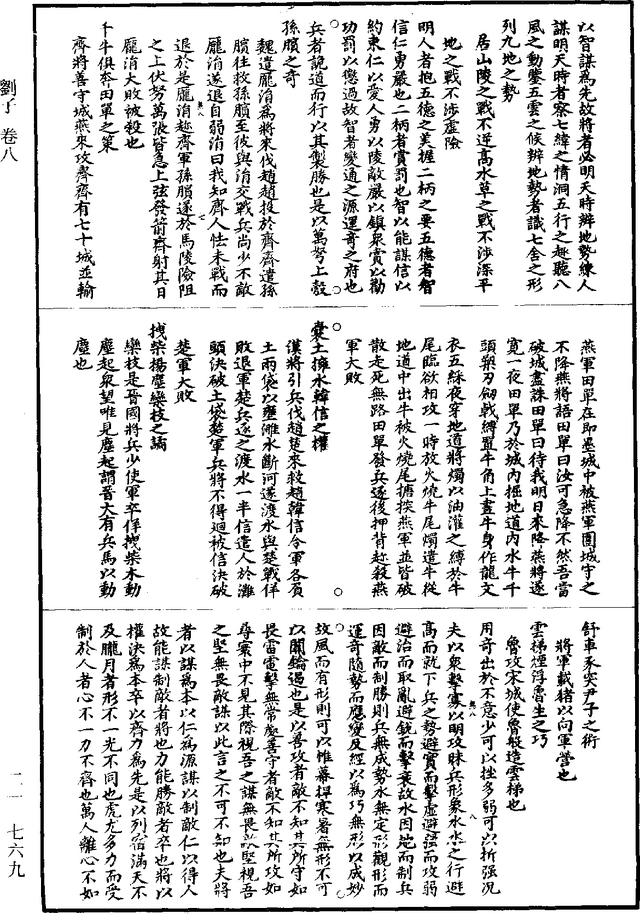 劉子 卷八
以智謀爲先故將者必明天時辨地勢練人
謀明天時者察七緯之情洞五行之趣聽八
風之動鑒五雲之候辨地勢者識七舍之形
列九地之勢
居山陵之戰不逆髙水草之戰不涉深平
地之戰不涉虛險
明人者抱五德之美握二柄之要五德者智
信仁勇嚴也二柄者賞罰也智以能謀信以
約束仁以愛人勇以陵敵嚴以鎮衆賞以勸
功罰以懲過故智者變通之源運奇之府也
兵者詭道而行以其製勝也是以萬弩上彀
孫臏之奇
魏遣龐涓爲將來伐趙趙投於齊齊遣孫
臏往救孫臏至彼與涓交戰兵尚少不敵
龐涓遂退自弱涓曰我知齊人怯未戰而
退於是龐涓趂齊軍孫臏遂於馬陵險阻
之上伏弩萬張皆急上弦發箭齊射其日
龐涓大敗被殺也
千牛俱奔田單之策
齊將善守城燕來攻齊齊有七十城並輸
燕軍田單在即墨城中被燕軍圍城守之
不降燕將語田單曰汝可急降不然吾當
破城盡誅田單曰待我明日來降燕將遂
寛一夜田單乃於城内掘地道内水牛千
頭槊刃劒戟縛置牛角上畫牛身作龍文
衣五綵夜穿地道將燭以油灌之縛於牛
尾臨欲相攻一時放火燒牛尾燭遣牛從
地道中出牛被火燒尾搪揬燕軍並皆破
散走死無路田單發兵逐後押背趂殺燕
軍大敗
囊土擁水韓信之權
漢將引兵伐趙楚來救趙韓信令軍各負
土兩袋以壅濰水斷河遂渡水與楚戰佯
敗退軍楚兵逐之渡水一半信遣人於灘
頭決破土袋楚軍兵將不得廻被信決破
楚軍大敗
拽柴揚塵欒枝之譎
欒枝是晉國將兵少使軍卒佯拽柴木動
塵起衆望唯見塵起謂晉大有兵馬以動
塵也
舒車豕突尹子之術
將軍載猪以向軍營也
雲梯煙浮魯生之巧
魯攻宋城使魯般造雲梯也
用奇出於不意少可以挫多弱可以折强况
夫以衆擊寡以明攻昧兵形象水水之行避
髙而就下兵之勢避實而擊虛避强而攻弱
避治而取亂避銳而擊衰故水因地而制兵
因敵而制勝則兵無成勢水無定形觀形而
運奇隨勢而應變反經以爲巧無形以成妙
故風而有形則可以帷幕捍寒暑無形不可
以關鑰遏也是以善攻者敵不知其所守如
畏雷電擊無常處善守者敵不知其所攻如
尋寰中不見其際視吾之謀無畏敵堅視吾
之堅無畏敵謀以此言之不可不知也夫將
者以謀爲本以仁爲源謀以制敵仁以得人
故能謀制敵者將也力能勝敵者卒也將以
權決爲本卒以齊力爲先是以列宿滿天不
及朧月者形不一光不同也虎尨多力而受
制於人者心不一力不齊也萬人離心不如
二一 七六九